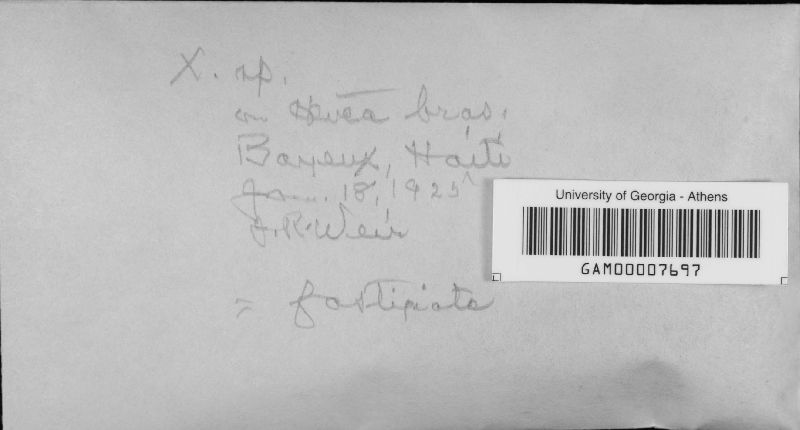 X. sp.
on Hevea bras.
Bayeux, Haiti
Jan. 18, 1925
J.R. Weir
= fastigiata
University of Georgia - Athens
GAM00007697